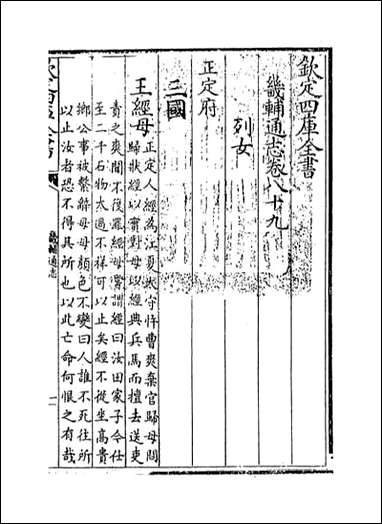 欽定四庫全書
畿輔通志卷八十九
列女
正定府
三國
王經母
正定人經為江夏太守忤曹爽棄官歸母問
歸狀經以實對母以經典兵馬而擅去送吏
責之爽聞不復罪經母嘗謂經曰汝田家子今仕
至二千石物太過不祥可以止矣經不從坐高貴
鄉公事被繫辭母母顏色不變曰人誰不死往所
以止汝者恐不得其所也以此亡命何恨之有哉
畿輔通志